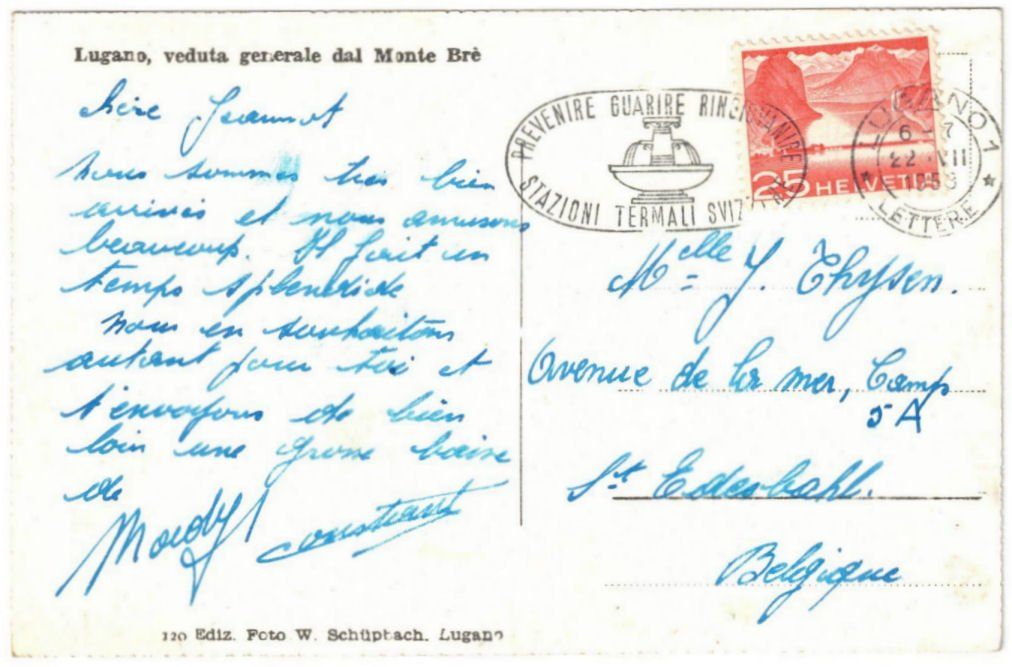 Lugano, veduta generale dal Monte Brè
Chère Jeannot
Nous sommes tres bien
arrivés et nous amusons
beaucoup. Il fait un
temps splendide
nous en souhaitons
autant pour toi et
t'envoyons de bien
loin une grosse baise
de
Mady
Constant
120 Ediz. Foto W. Schüpbach. Lugano
PREVENIRE GUARIRE RINGIOVANIRE
STAZIONI TERMALI SVIZZERE
25 HELVETIA
LUGANO 1
6-7
22.VII
1958
LETTERE
Melle J. Thysen.
Avenue de la mer, Camp
5A
St. Edesbahl.
Belgique